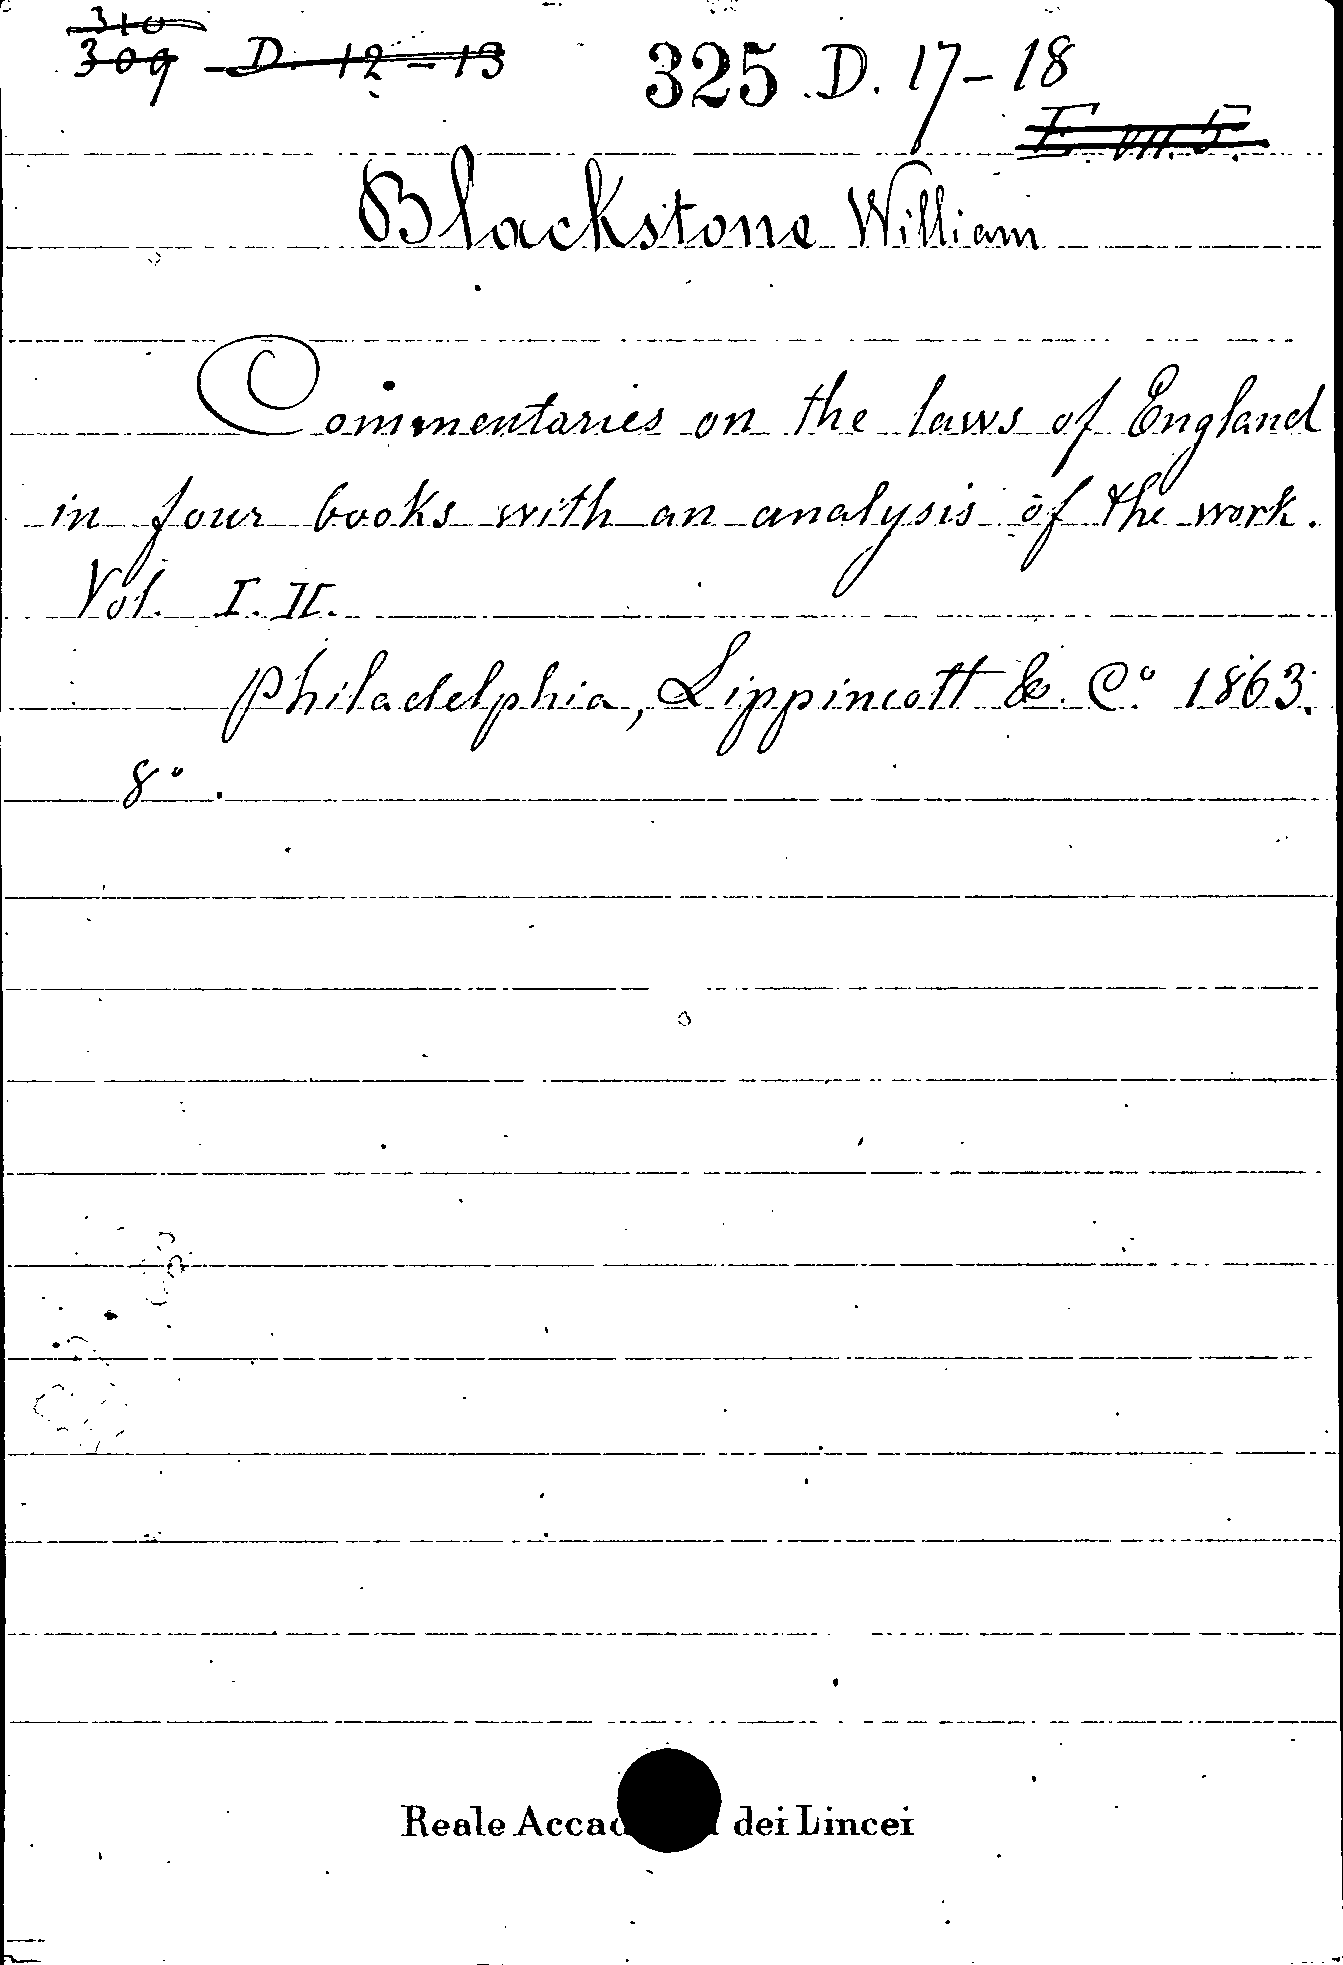 310
309 D. 12-13 325 D. 17-18
E. m. 5.
Blackstone William
Commentaries on the laws of England
in four books with an analysis of the work.
Vol. I. II.
Philadelphia, Lippincott & C.° 1863.
8°.
Reale Accad dei Lincei